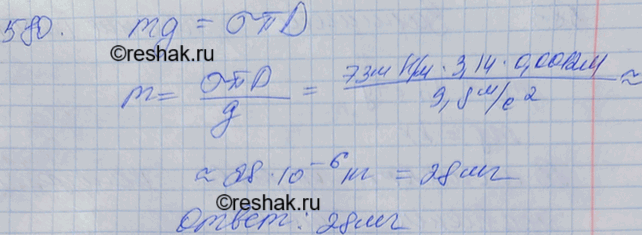 580. mg = σπD
©reshak.ru
m = σπD / g = 73м Н/м · 3,14 · 0,0012м / 9,8 м/с² ≈
≈ 28 · 10⁻⁶ кг = 28мг
©reshak.ru
Ответ: 28мг